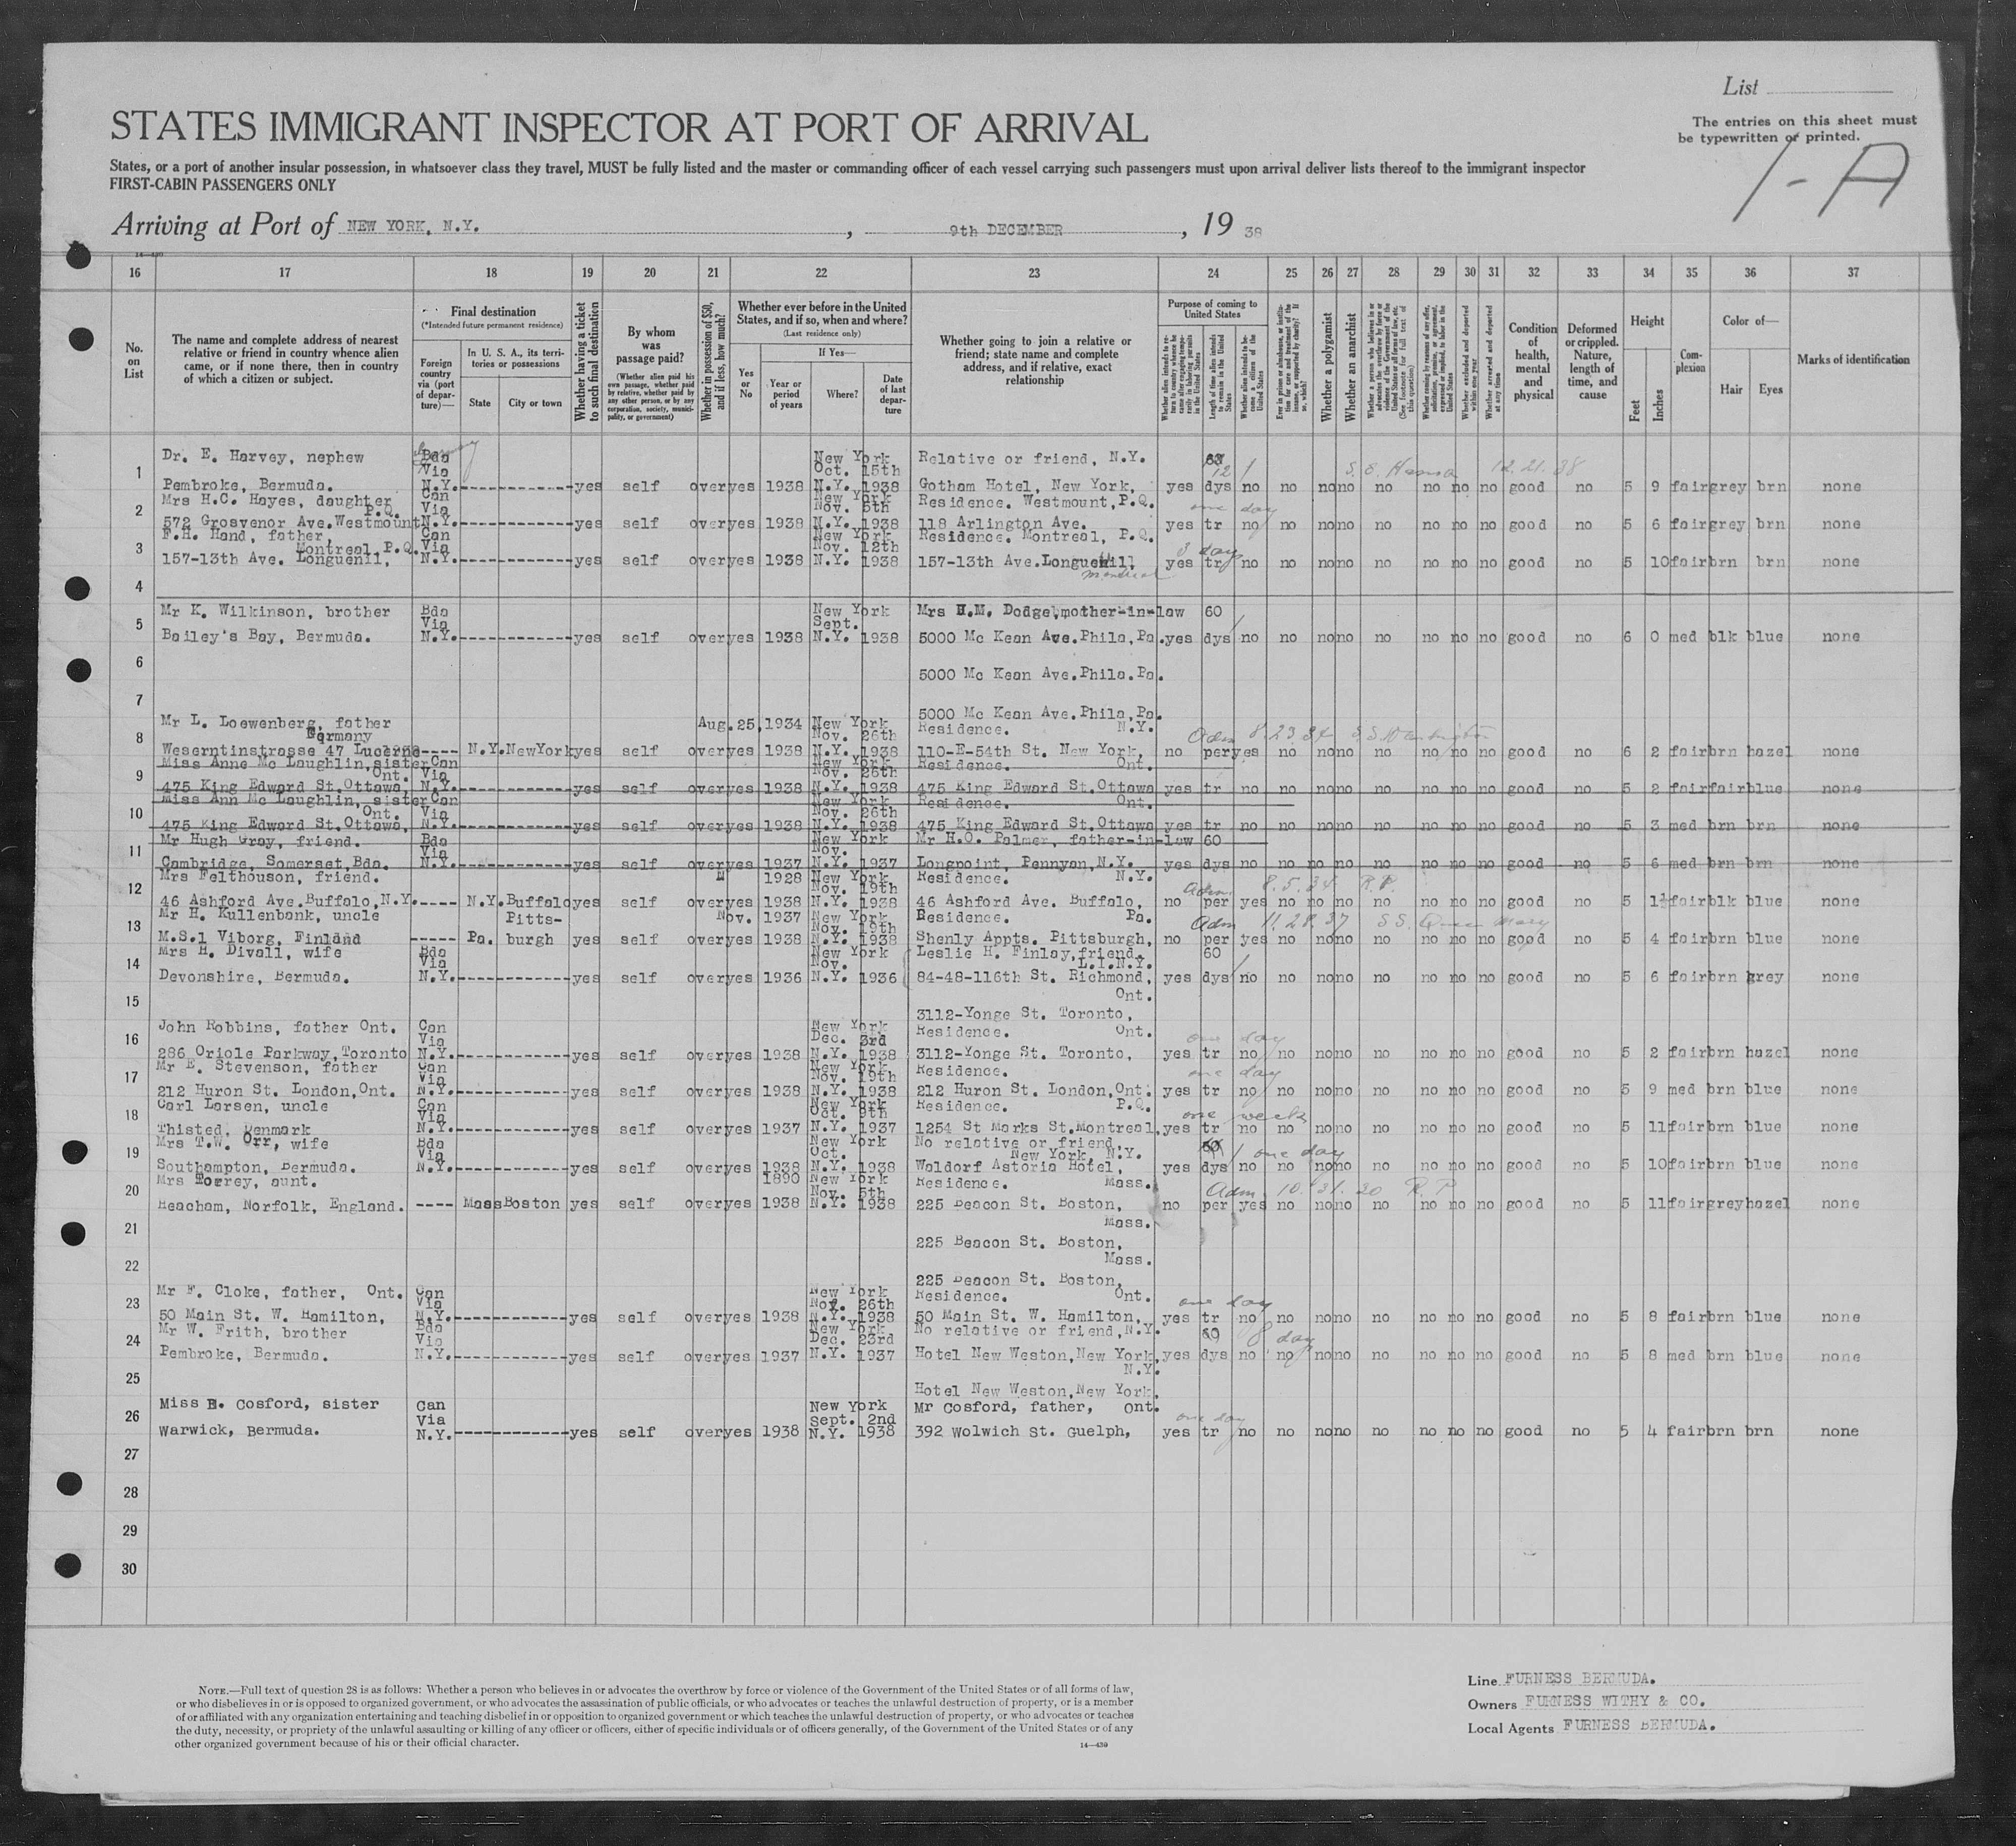 List
STATES IMMIGRANT INSPECTOR AT PORT OF ARRIVAL
The entries on this sheet must
be typewritten or printed.
States, or a port of another insular possession, in whatsoever class they travel, MUST be fully listed and the master or commanding officer of each vessel carrying such passengers must upon arrival deliver lists thereof to the immigrant inspector
FIRST-CABIN PASSENGERS ONLY
1-A
Arriving at Port of NEW YORK, N.Y. , 9th DECEMBER , 19 38
16 17 18 19 20 21 22 23 24 25 26 27 28 29 30 31 32 33 34 35 36 37
No. on List
The name and complete address of nearest relative or friend in country whence alien came, or if none there, then in country of which a citizen or subject.
Final destination
(*Intended future permanent residence)
Foreign country via (port of departure)—
In U. S. A., its territories or possessions
State
City or town
Whether having a ticket to such final destination
By whom was passage paid?
(Whether alien paid his own passage, whether paid by relative, whether paid by any other person, or by any corporation, society, municipality, or government)
Whether in possession of $50, and if less, how much?
Whether ever before in the United States, and if so, when and where?
(Last residence only)
Yes or No
If Yes—
Year or period of years
Where?
Date of last departure
Whether going to join a relative or friend; state name and complete address, and if relative, exact relationship
Purpose of coming to United States
Length of time alien intends to remain in the United States
Whether alien intends to become a citizen of the United States
Whether a polygamist
Whether an anarchist
Whether excluded and deported within one year
Whether arrested and deported at any time
Condition of health, mental and physical
Deformed or crippled. Nature, length of time, and cause
Height
Feet
Inches
Complexion
Color of—
Hair
Eyes
Marks of identification
1 Dr. E. Harvey, nephew Bda Via New York Oct. 15th Relative or friend, N.Y. 12 12.21.38
Pembroke, Bermuda. N.Y. yes self over yes 1938 N.Y. 1938 Gotham Hotel, New York, yes dys no no no no no no no no good no 5 9 fair grey brn none
2 Mrs H.C. Hayes, daughter P.Q. Can Via New York Nov. 5th Residence. Westmount, P.Q. one day
572 Grosvenor Ave. Westmount N.Y. yes self over yes 1938 N.Y. 1938 118 Arlington Ave. yes tr no no no no no no no no good no 5 6 fair grey brn none
3 F.H. Hand, father, Montreal, P.Q. Can Via New York Nov. 12th Residence. Montreal, P.Q. 3 days
157-13th Ave. Longueuil, N.Y. yes self over yes 1938 N.Y. 1938 157-13th Ave. Longueuil, yes tr no no no no no no no no good no 5 10 fair brn brn none
Montreal
4
5 Mr K. Wilkinson, brother Bda Via New York Sept. Mrs H.M. Dodge, mother-in-law 60
Bailey's Bay, Bermuda. N.Y. yes self over yes 1938 N.Y. 1938 5000 Mc Kean Ave. Phila, Pa. yes dys no no no no no no no no good no 6 0 med blk blue none
6 5000 Mc Kean Ave. Phila. Pa.
7 5000 Mc Kean Ave. Phila, Pa.
8 Mr L. Loewenberg, father Germany Aug. 25, 1934 New York Nov. 26th Residence. N.Y. Adm 8.23.34 S.S. Washington
Weserntinstrasse 47 Lucerne ---- N.Y. New York yes self over yes 1938 N.Y. 1938 110-E-54th St. New York, no per yes no no no no no no no good no 6 2 fair brn hazel none
9 Miss Anne Mc Laughlin, sister Ont. Can Via New York Nov. 26th Residence. Ont.
475 King Edward St. Ottawa, N.Y. yes self over yes 1938 N.Y. 1938 475 King Edward St. Ottawa yes tr no no no no no no no no good no 5 2 fair fair blue none
10 Miss Ann Mc Laughlin, sister Ont. Can Via New York Nov. 26th Residence. Ont.
475 King Edward St. Ottawa, N.Y. yes self over yes 1938 N.Y. 1938 475 King Edward St. Ottawa yes tr no no no no no no no no good no 5 3 med brn brn none
11 Mr Hugh Gray, friend. Bda Via New York Nov. Mr H.O. Palmer, father-in-law 60
Cambridge, Somerset, Bda. N.Y. yes self over yes 1937 N.Y. 1937 Longpoint, Pennyan, N.Y. yes dys no no no no no no no no good no 5 6 med brn brn none
12 Mrs Felthouson, friend. 1928 New York Nov. 19th Residence. N.Y. Adm. 8.5.34 R.P.
46 Ashford Ave. Buffalo, N.Y. ---- N.Y. Buffalo yes self over yes 1938 N.Y. 1938 46 Ashford Ave. Buffalo, no per yes no no no no no no no good no 5 1½ fair blk blue none
13 Mr H. Kullenbank, uncle Pitts- Nov. 1937 New York Nov. 19th Residence. Pa. Adm 11.28.37 SS. Queen Mary
M.S.1 Viborg, Finland ----- Pa. burgh yes self over yes 1938 N.Y. 1938 Shenly Appts. Pittsburgh, no per yes no no no no no no no good no 5 4 fair brn blue none
14 Mrs H. Divall, wife Bda Via New York Nov. Leslie H. Finlay, friend. L.I.N.Y. 60
Devonshire, Bermuda. N.Y. yes self over yes 1936 N.Y. 1936 84-48-116th St. Richmond, yes dys no no no no no no no no good no 5 6 fair brn grey none
15 Ont.
3112-Yonge St. Toronto,
16 John Robbins, father Ont. Can Via New York Dec. 3rd Residence. Ont. one day
286 Oriole Parkway, Toronto N.Y. yes self over yes 1938 N.Y. 1938 3112-Yonge St. Toronto, yes tr no no no no no no no no good no 5 2 fair brn hazel none
17 Mr E. Stevenson, father Can Via New York Nov. 19th Residence. one day
212 Huron St. London, Ont. N.Y. yes self over yes 1938 N.Y. 1938 212 Huron St. London, Ont. yes tr no no no no no no no no good no 5 9 med brn blue none
18 Carl Larsen, uncle Can Via New York Oct. 9th Residence. P.Q. one week
Thisted, Denmark N.Y. yes self over yes 1937 N.Y. 1937 1254 St Marks St. Montreal, yes tr no no no no no no no no good no 5 11 fair brn blue none
19 Mrs T.W. Orr, wife Bda Via New York Oct. No relative or friend, New York, N.Y. 60 one day
Southampton, Bermuda. N.Y. yes self over yes 1938 N.Y. 1938 Waldorf Astoria Hotel, yes dys no no no no no no no no good no 5 10 fair brn blue none
20 Mrs Torrey, aunt. 1890 New York Nov. 5th Residence. Mass. Adm. 10.31.30 R.P
Heacham, Norfolk, England. ---- Mass Boston yes self over yes 1938 N.Y. 1938 225 Beacon St. Boston, no per yes no no no no no no no good no 5 11 fair grey hazel none
21 Mass.
225 Beacon St. Boston,
22 Mass.
225 Beacon St. Boston,
23 Mr F. Cloke, father, Ont. Can Via New York Nov. 26th Residence. Ont. one day
50 Main St. W. Hamilton, N.Y. yes self over yes 1938 N.Y. 1938 50 Main St. W. Hamilton, yes tr no no no no no no no no good no 5 8 fair brn blue none
24 Mr W. Frith, brother Bda Via New York Dec. 23rd No relative or friend, N.Y. 60 8 days
Pembroke, Bermuda. N.Y. yes self over yes 1937 N.Y. 1937 Hotel New Weston, New York, yes dys no no no no no no no no good no 5 8 med brn blue none
25 N.Y.
Hotel New Weston, New York.
26 Miss E. Cosford, sister Can Via New York Sept. 2nd Mr Cosford, father, Ont. one day
Warwick, Bermuda. N.Y. yes self over yes 1938 N.Y. 1938 392 Wolwich St. Guelph, yes tr no no no no no no no no good no 5 4 fair brn brn none
27
28
29
30
NOTE.—Full text of question 28 is as follows: Whether a person who believes in or advocates the overthrow by force or violence of the Government of the United States or of all forms of law,
or who disbelieves in or is opposed to organized government, or who advocates the assassination of public officials, or who advocates or teaches the unlawful destruction of property, or is a member
of or affiliated with any organization entertaining and teaching disbelief in or opposition to organized government or which teaches the unlawful destruction of property, or who advocates or teaches
the duty, necessity, or propriety of the unlawful assaulting or killing of any officer or officers, either of specific individuals or of officers generally, of the Government of the United States or of any
other organized government because of his or their official character.
14—430
Line FURNESS BERMUDA.
Owners FURNESS WITHY & CO.
Local Agents FURNESS BERMUDA.